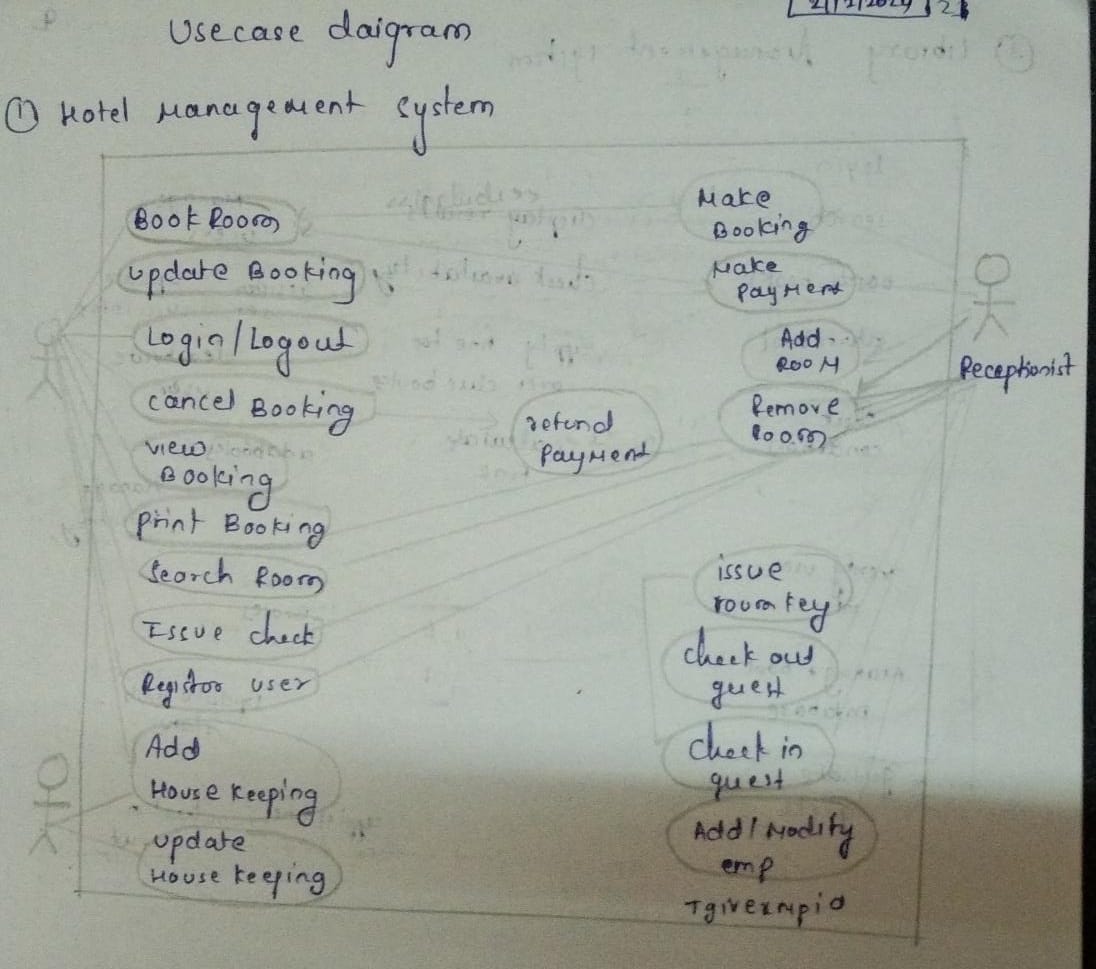 Usecase daigram
① Hotel Management system
Book Room
update Booking
Login/Logout
cancel Booking
view
Booking
print Booking
Search Room
Issue check
Register user
Add
House keeping
update
House keeping
refund
payment
Make
Booking
Make
payment
Add
Room
Remove
Room
issue
room key
check out
guest
check in
guest
Add/Modify
emp
Receptionist